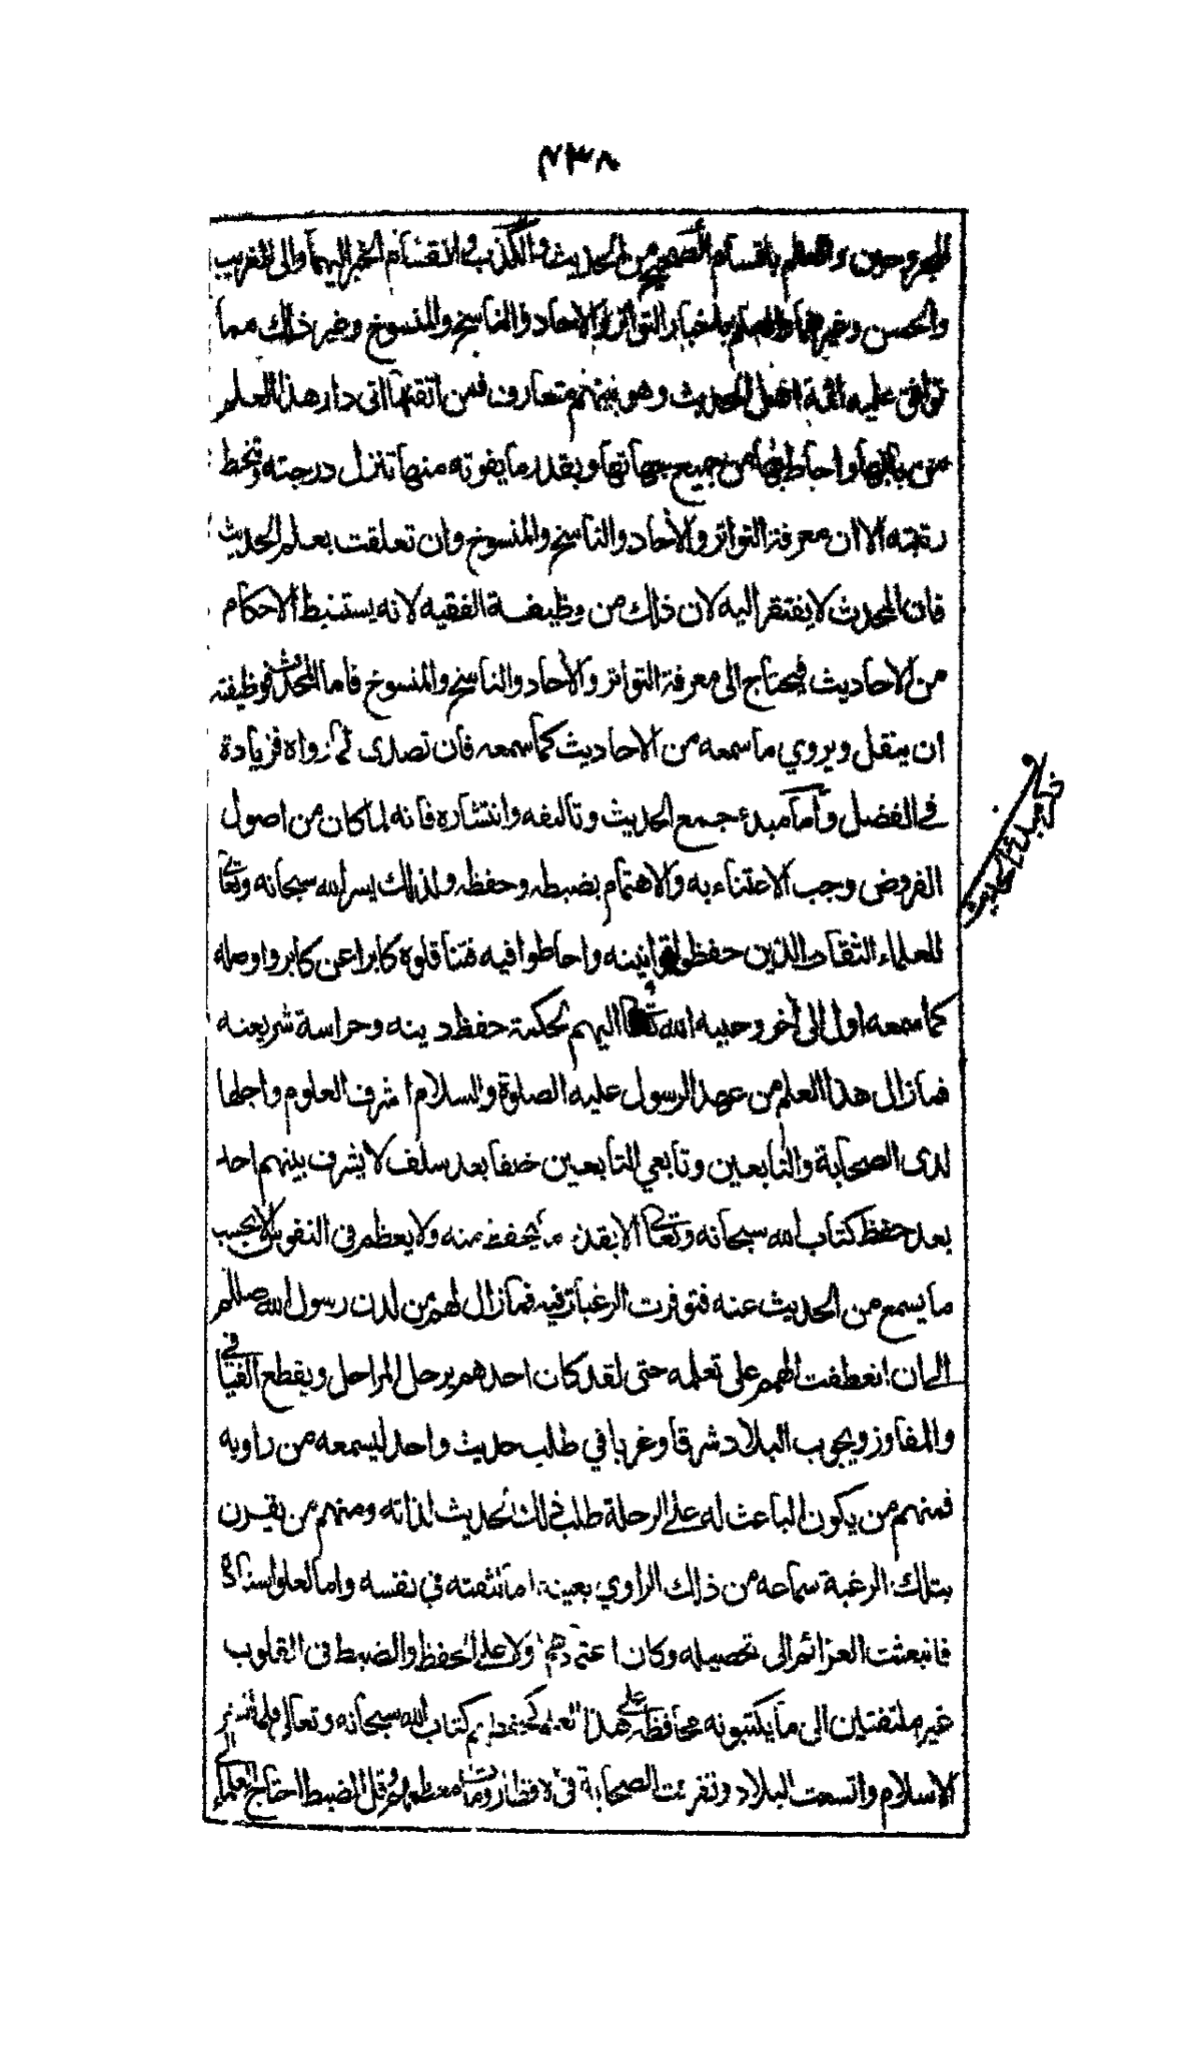 ٢٣٨
المجروحين والعلم باقسام الصحيح من الحديث والكذب وانقسام الخبر اليهما والى الغريب
والحسن وغيرهما والعلم باخبار التواتر والآحاد والناسخ والمنسوخ وغير ذلك مما
توافق عليه ائمة اهل الحديث وهو بينهم متعارف فمن اتقنها اتى دار هذا العلم
من بابها واحاط بها من جميع جهاتها وبقدر ما يفوته منها تنزل درجته وتنحط
رتبته الا ان معرفة التواتر والآحاد والناسخ والمنسوخ وان تعلقت بعلم الحديث
فان المحدث لا يفتقر اليه لان ذلك من وظيفة الفقيه لانه يستنبط الاحكام
من الاحاديث فيحتاج الى معرفة التواتر والآحاد والناسخ والمنسوخ فاما المحدث فوظيفته
ان ينقل ويروي ما سمعه من الاحاديث كما سمعه فان تصدى لما رواه فزيادة
في الفضل واما مبدء جمع الحديث وتاليفه وانتشاره فانه لما كان من اصول
الفروض وجب الاعتناء به والاهتمام بضبطه وحفظه ولذلك يسر الله سبحانه وتعالى
للعلماء الثقات الذين حفظوا قوانينه واحاطوا فيه فتناقلوه كابرا عن كابر واوصله
كما سمعه اول الى آخر وحببه الله تعالى اليهم لحكمة حفظ دينه وحراسة شريعته
فما زال هذا العلم من عهد الرسول عليه الصلوة والسلام اشرف العلوم واجلها
لدى الصحابة والتابعين وتابعي التابعين خلفا بعد سلف لا يشرف بينهم احد
بعد حفظ كتاب الله سبحانه وتعالى الا بقدر ما يحفظ منه ولا يعظم في النفوس الا بحسب
ما يسمع من الحديث عنه فتوفرت الرغبات فيه فما زال لهم من لدن رسول الله صللم
الى ان انعطفت الهمم على تعلمه حتى لقد كان احدهم يرحل المراحل ويقطع الفيافي
والمفاوز ويجوب البلاد شرقا وغربا في طلب حديث واحد ليسمعه من راويه
فمنهم من يكون الباعث له على الرحلة طلب ذلك الحديث لذاته ومنهم من يقرن
بتلك الرغبة سماعه من ذلك الراوي بعينه اما لثقته في نفسه واما لعلو اسناده
فانبعثت العزائم الى تحصيله وكان اعتمادهم اولا على الحفظ والضبط في القلوب
غير ملتفتين الى ما يكتبونه محافظة على هذا العلم كحفظهم كتاب الله سبحانه وتعالى فلما انتشر
الاسلام واتسعت البلاد وتفرقت الصحابة في الاقطار ومات معظمهم وقل الضبط احتاج العلماء الى
ف مبدء الحديث